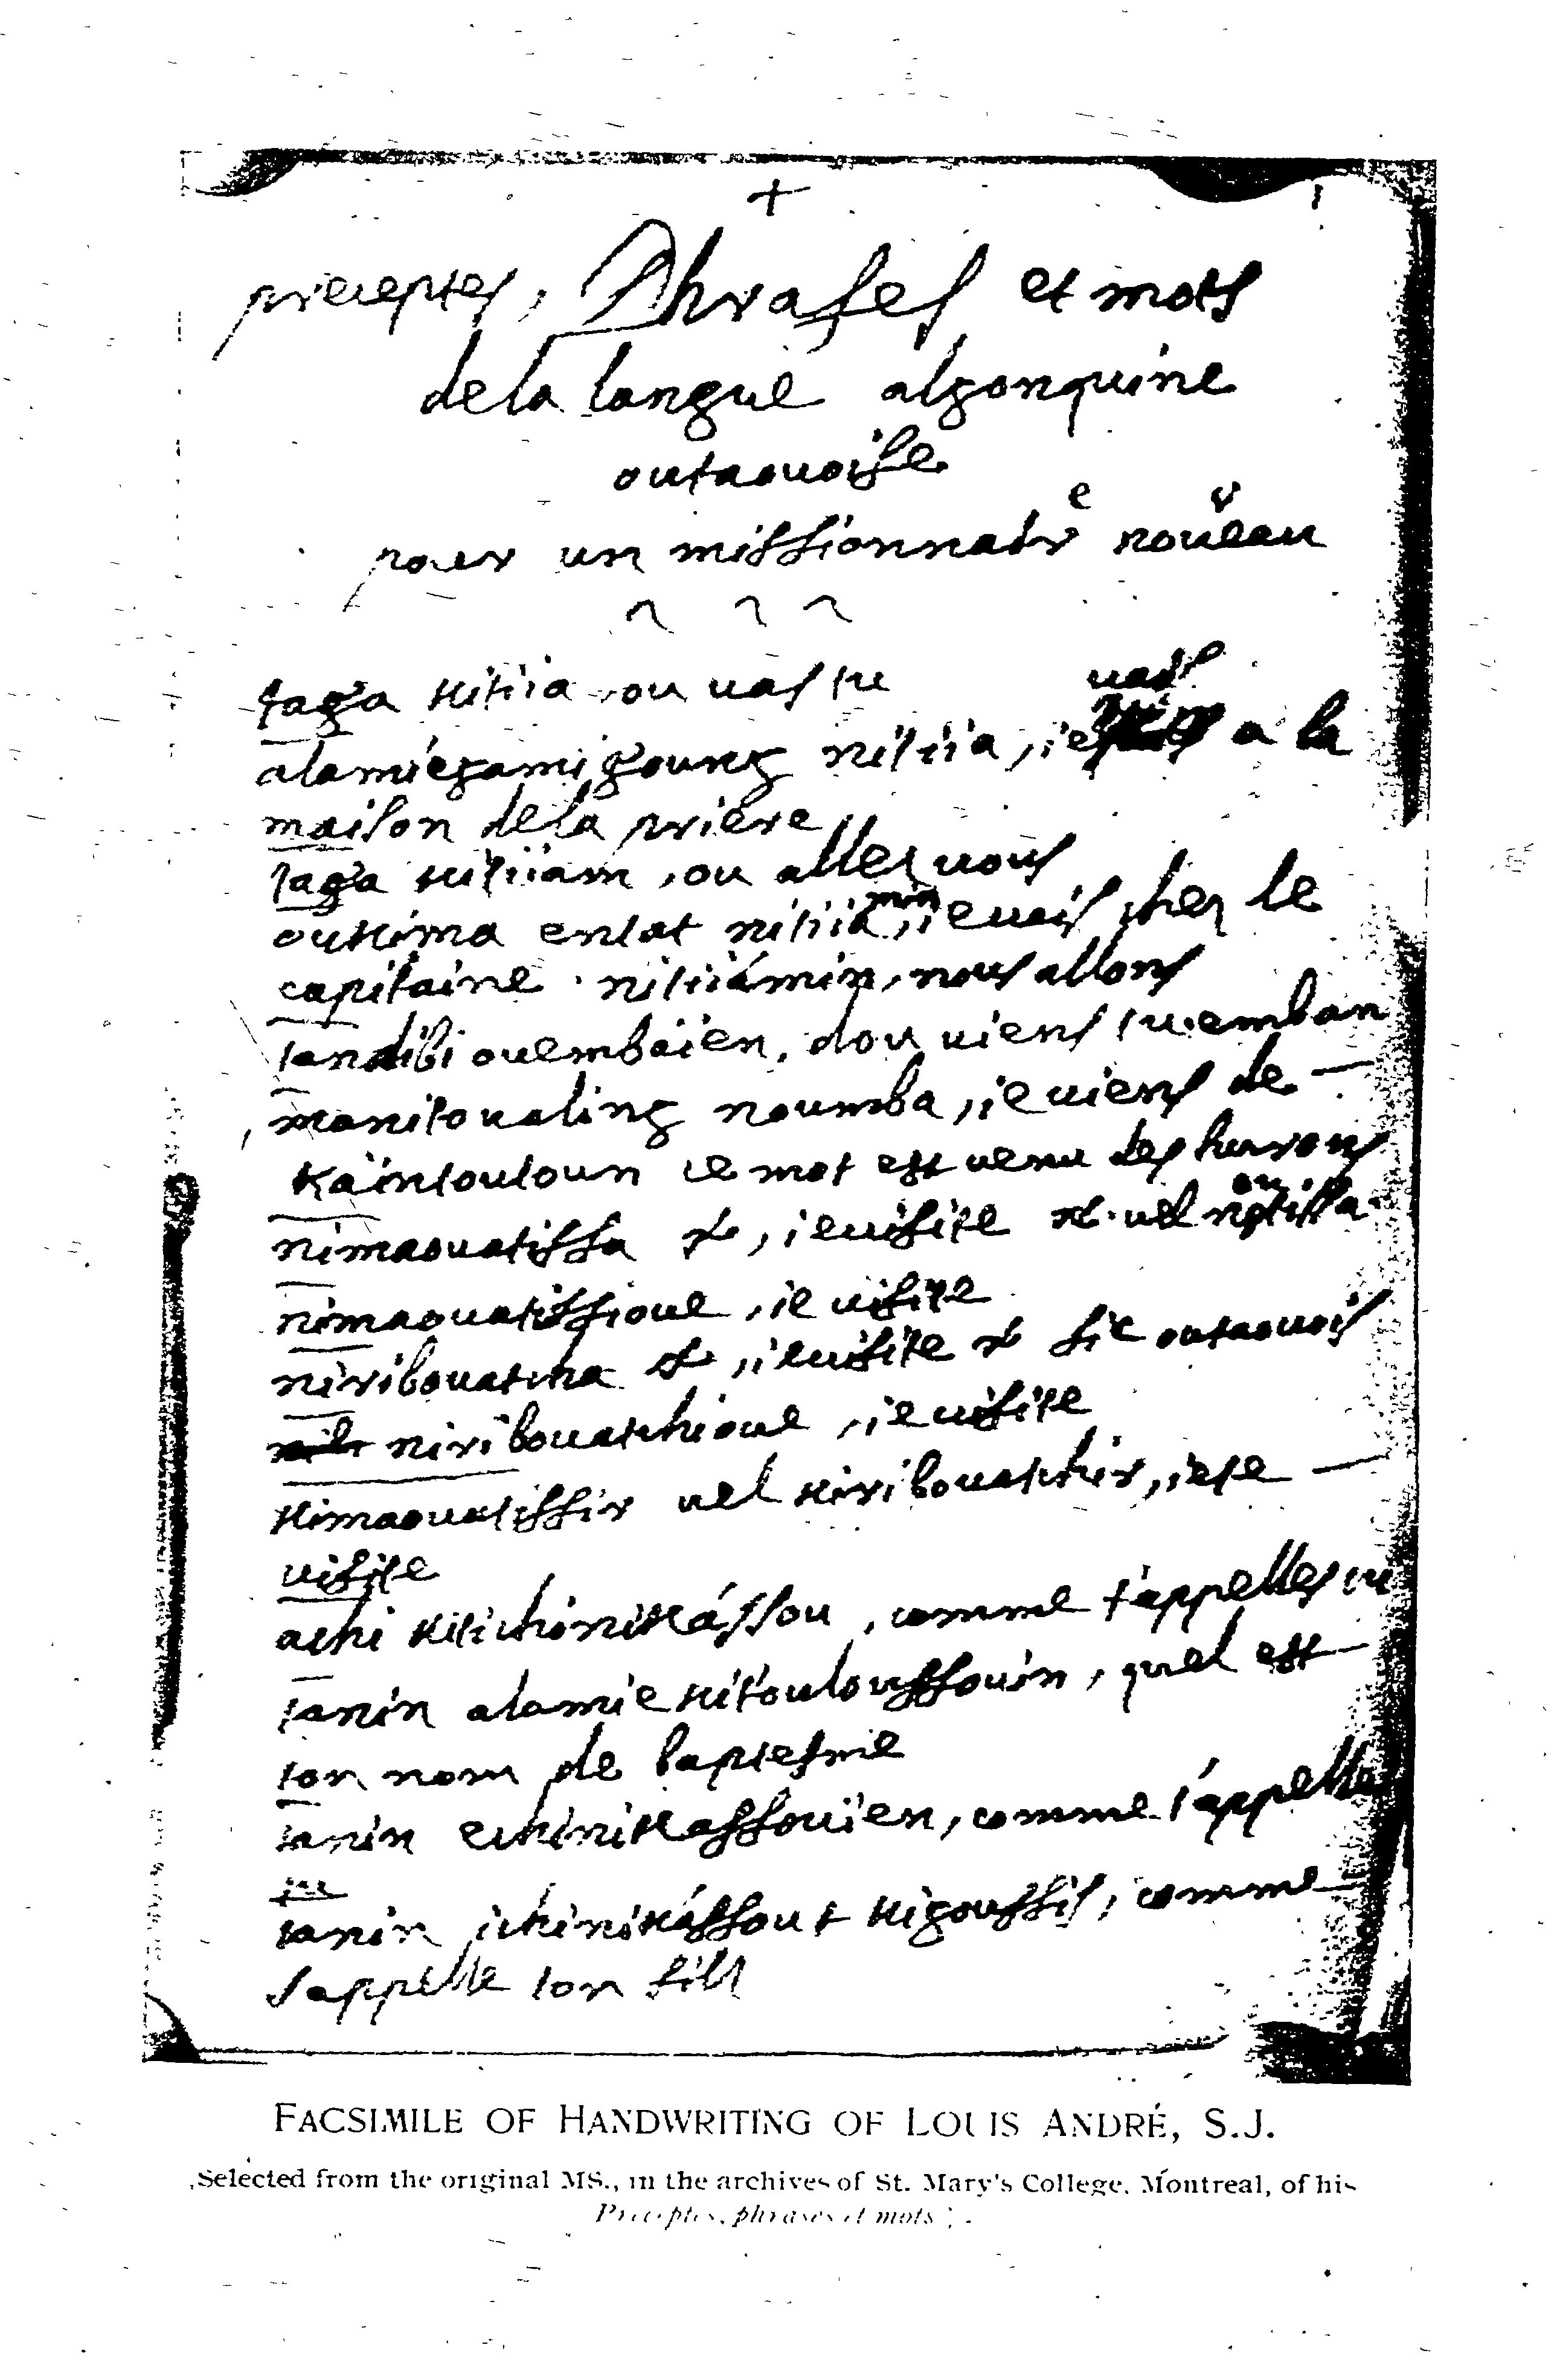 +
preceptes, Phrases et mots
de la langue algonquine
outaouoise
pour un missionnair e nouueau
taga kitiia ou uas tu
alamiegamigoung nitiia, ie uais a la
maison de la priere
taga kitiiam, ou allez uous
oukima entat nitiia min, ie uais chez le
capitaine nitiiámin, nous allons
tandibi ouembaien, dou uiens tu emban
manitoualing noumba, ie uiens de
Kaintoutoun ce mot est uenu des hurons
nimaouatissa , ie uisite uel
nimaouatissioue, ie uisite
niribouatcha , ie uisite sic outaouois
niribouatchioue, ie uisite
kimaouatissir uel kiribouatchir, ie te
uisite
achi kitichinikássou, comme t'appelles tu
tanin alamie kitouloussouin, quel est
ton nom de baptesme
tanin echinikassouien, comme t'appelles
tu
tanin ichinikássout kigoussis, comme
s'appelle ton fils
FACSIMILE OF HANDWRITING OF LOUIS ANDRÉ, S.J.
Selected from the original MS., in the archives of St. Mary's College, Montreal, of his
Preceptes, phrases et mots